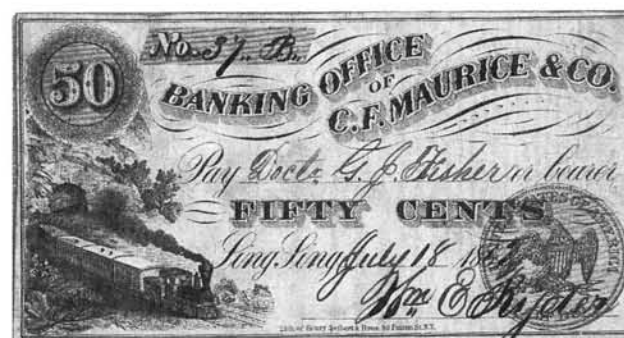 50
No. 37. B.
BANKING OFFICE
OF
C.F. MAURICE & CO.
Pay Doctr. G. J. Fisher or bearer
FIFTY CENTS
Sing Sing July 18 186
Wm E Ryder